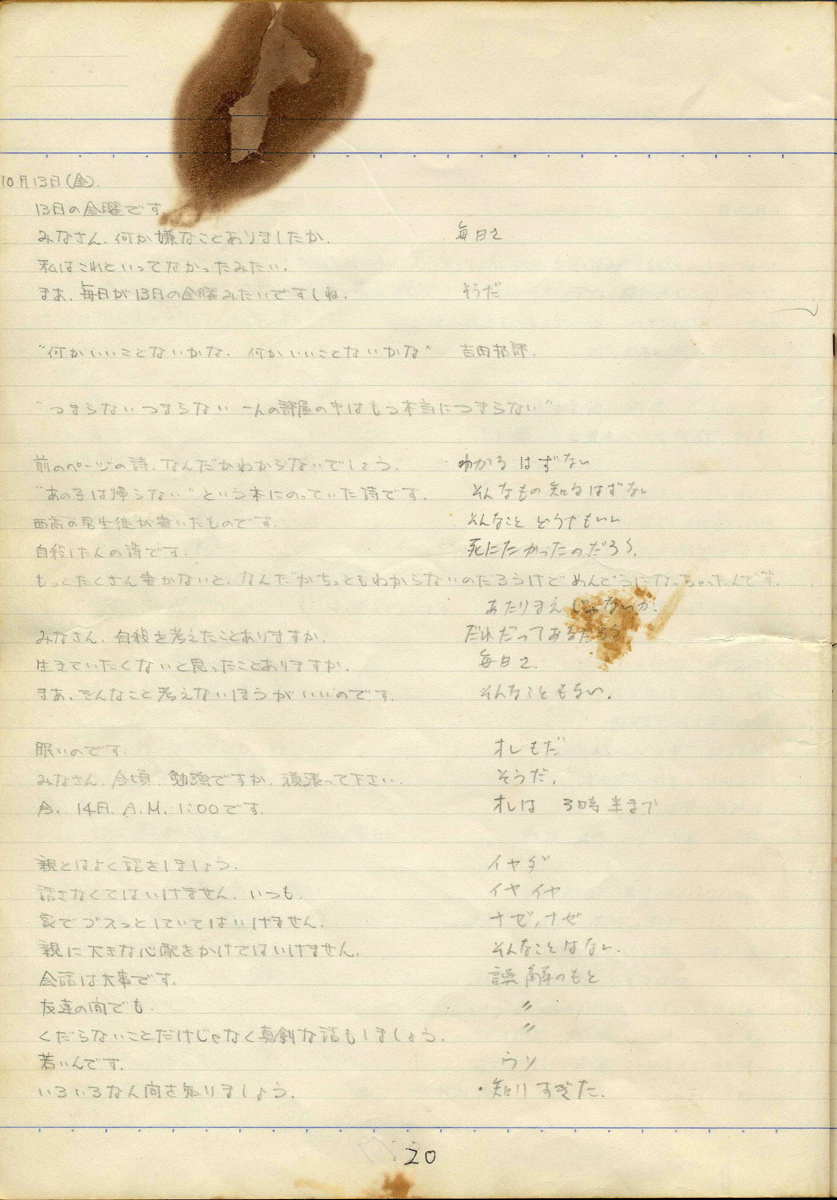 10月13日(金).
13日の金曜です
みなさん、何か嫌なことありましたか. 毎日さ
私はこれといってなかったみたい.
まあ、毎日が13日の金曜みたいですしね. そうだ
"何かいいことないかな、何かいいことないかな" 吉田拓郎.
"つまらないつまらない 一人の部屋の中はもう本当につまらない"
前のページの詩、なんだかわからないでしょう. わかるはずない
"あの子は帰らない"という本にのっていた詩です. そんなもの知るはずない
西高の男生徒が書いたものです. そんなこと どうでもいい
自殺した人の詩です. 死にたかったのだろう.
もっとたくさん書かないと、なんだかちっともわからないのだろうけど めんどうになっちゃったんです.
あたりまえじゃないか.
みなさん、自殺を考えたことありますか. だれだってあるだろう
生きていたくないと思ったことありますか. 毎日さ.
まあ、そんなこと考えないほうがいいのです. そんなこともない.
眠いのです. オレもだ
みなさん、今頃、勉強ですか、頑張って下さい. そうだ.
今、14日、A.M. 1:00です. オレは 3時半まで
親とはよく話をしましょう. イヤダ
話さなくてはいけません、いつも. イヤイヤ
家でブスっとしていてはいけません. ナゼ,ナゼ
親に大きな心配をかけてはいけません. そんなことはない.
会話は大事です. 誤解のもと
友達の間でも. 〃
くだらないことだけじゃなく真剣な話もしましょう. 〃
若いんです. ウソ
いろいろなん向を知りましょう. ・知りすぎた.
20